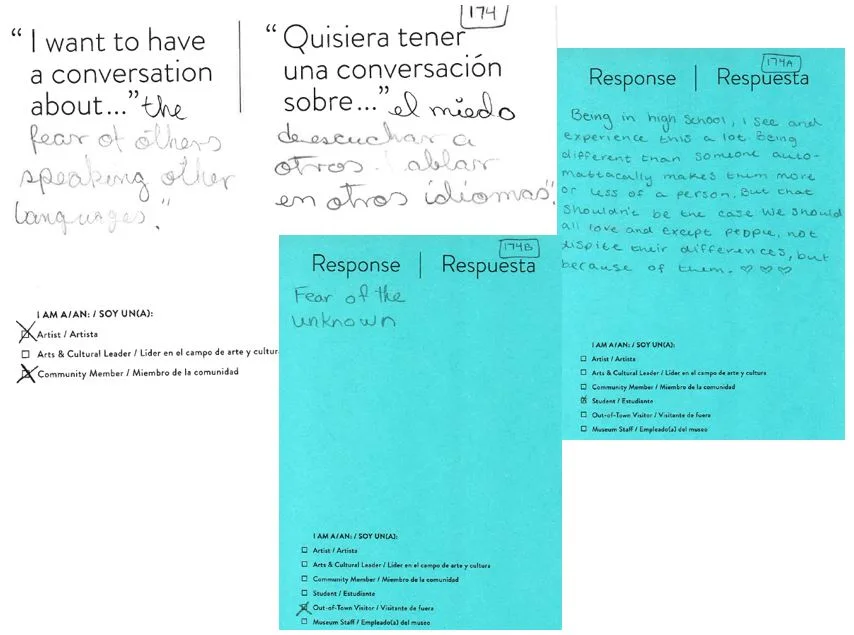 “ I want to have
a conversation
about...” the
fear of others
speaking other
languages."
I AM A/AN: / SOY UN(A):
Artist / Artista
Arts & Cultural Leader / Líder en el campo de arte y cultur
Community Member / Miembro de la comunidad
174
“ Quisiera tener
una conversación
sobre...” el miedo
de escuchar a
otros hablar
en otros idiomas".
174A
Response | Respuesta
Being in high school, I see and
experience this a lot. Being
different than someone auto-
mattacally makes them more
or less of a person. But that
shouldn't be the case We should
all love and except people, not
dispite their differences, but
because of them. ♡ ♡ ♡
I AM A/AN: / SOY UN(A):
Artist / Artista
Arts & Cultural Leader / Líder en el campo de arte y cultura
Community Member / Miembro de la comunidad
Student / Estudiante
Out-of-Town Visitor / Visitante de fuera
Museum Staff / Empleado(a) del museo
174B
Response | Respuesta
Fear of the
unknown
I AM A/AN: / SOY UN(A):
Artist / Artista
Arts & Cultural Leader / Líder en el campo de arte y cultura
Community Member / Miembro de la comunidad
Student / Estudiante
Out-of-Town Visitor / Visitante de fuera
Museum Staff / Empleado(a) del museo